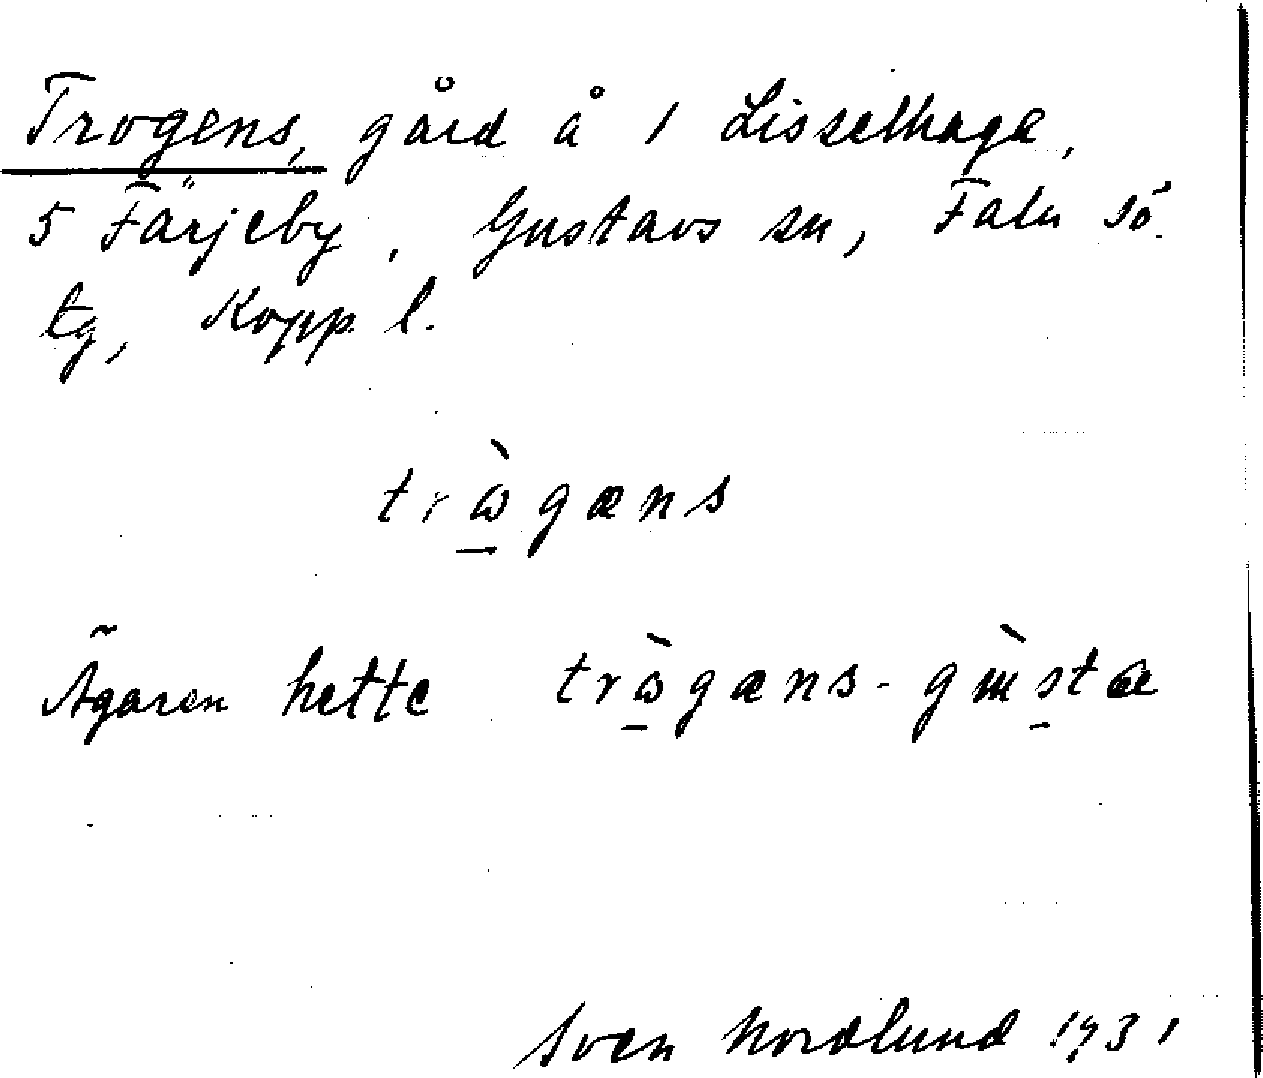 Trogens, gård å 1 Lisselhage,
5 Färjeby, Gustavs sn, Falu sö.
tg, Kopp. l.
trɷ̀gæns
Ägaren hette trɷ̀gæns-gɯ̀stæ
Sven Nordlund 1931